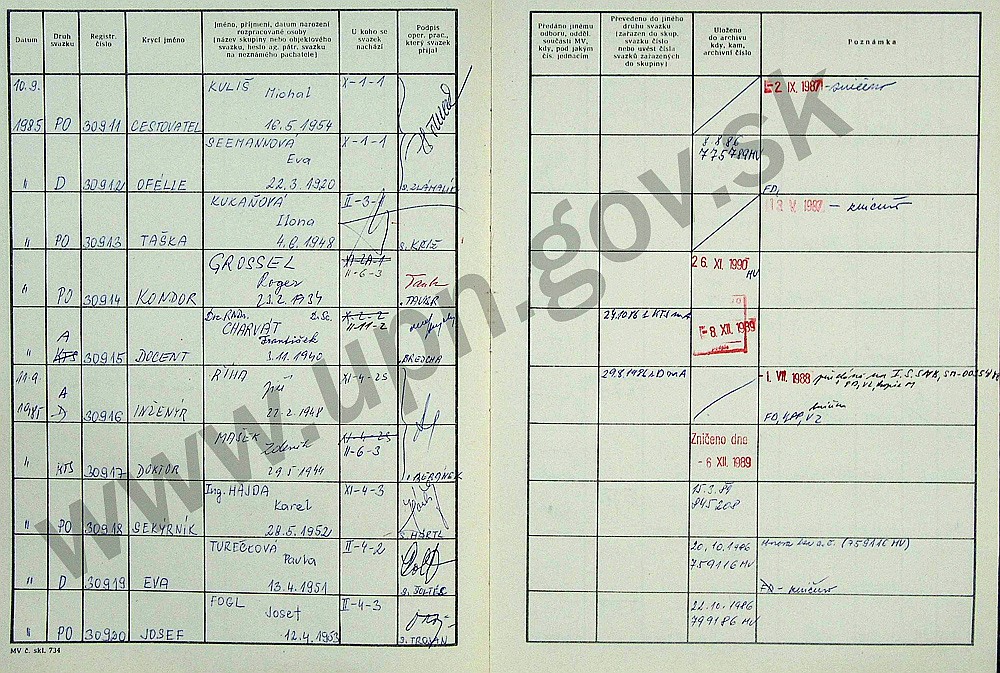 Datum
Druh svazku
Registr. číslo
Krycí jméno
Jméno, příjmení, datum narození
rozpracované osoby
(název skupiny nebo objektového
svazku, heslo ag. pátr. svazku
na neznámého pachatele)
U koho se
svazek
nachází
Podpis
oper. prac.,
který svazek
přijal
Předáno jinému
odboru, odděl.
součásti MV,
kdy, pod jakým
čís. jednacím
Převedeno do jiného
druhu svazku
(zařazen do skup.
svazku číslo
nebo uvést čísla
svazků zařazených
do skupiny)
Uloženo
do archivu
kdy, kam,
archivní číslo
Poznámka
10.9. KULIŠ X-1-1
Michal
1985 PO 30911 CESTOVATEL 16.5.1954
2. IX. 1987 - zničeno
SEEMANNOVÁ X-1-1
Eva
" D 30912 OFÉLIE 22.3.1920 S. ZLÁMALÍK
8.8.86
775789 MV
KUKAŇOVÁ II-3-1
Ilona
" PO 30913 TAŠKA 4.6.1948 S. KŘÍŽ
FD,
V. 1987 - zničeno
GROSSEL
Roger II-6-3
" PO 30914 KONDOR 23.2.1934 TAUER
26. XI. 1990 MV
CHARVÁT X-2-2
František II-11-2
A
" KTS 30915 DOCENT 3.11.1940 BREJCHA
24.10.86 z KTS na A
8. XII. 1989
11.9. ŘÍHA XI-4-25
A Jiří
1985 D 30916 INŽENÝR 22.2.1948
29.8.1986 z D na A
1. VII. 1988
MAŠEK XI-4-25
Zdeněk II-6-3
" KTS 30917 DOKTOR 29.5.1944 BERÁNEK
Zničeno dne
- 6 XII. 1989
Ing. HAJDA XI-4-3
Karel
" PO 30918 SEKÝRNÍK 28.5.1952 S. HARTL
15.3.89
845208
TUREČKOVÁ II-4-2
Pavla
" D 30919 EVA 13.4.1951
20.10.1986
759116 MV
(759116 MV)
FD - zničeno
FOGL II-4-3
Josef
" PO 30920 JOSEF 12.4.1953 S. TROJAN
22.10.1986
799186 MV
MV č. skl. 734
www.upn.gov.sk